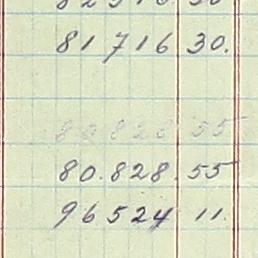 81 716 30.
80 828 55
80.828.55
96 524 11.